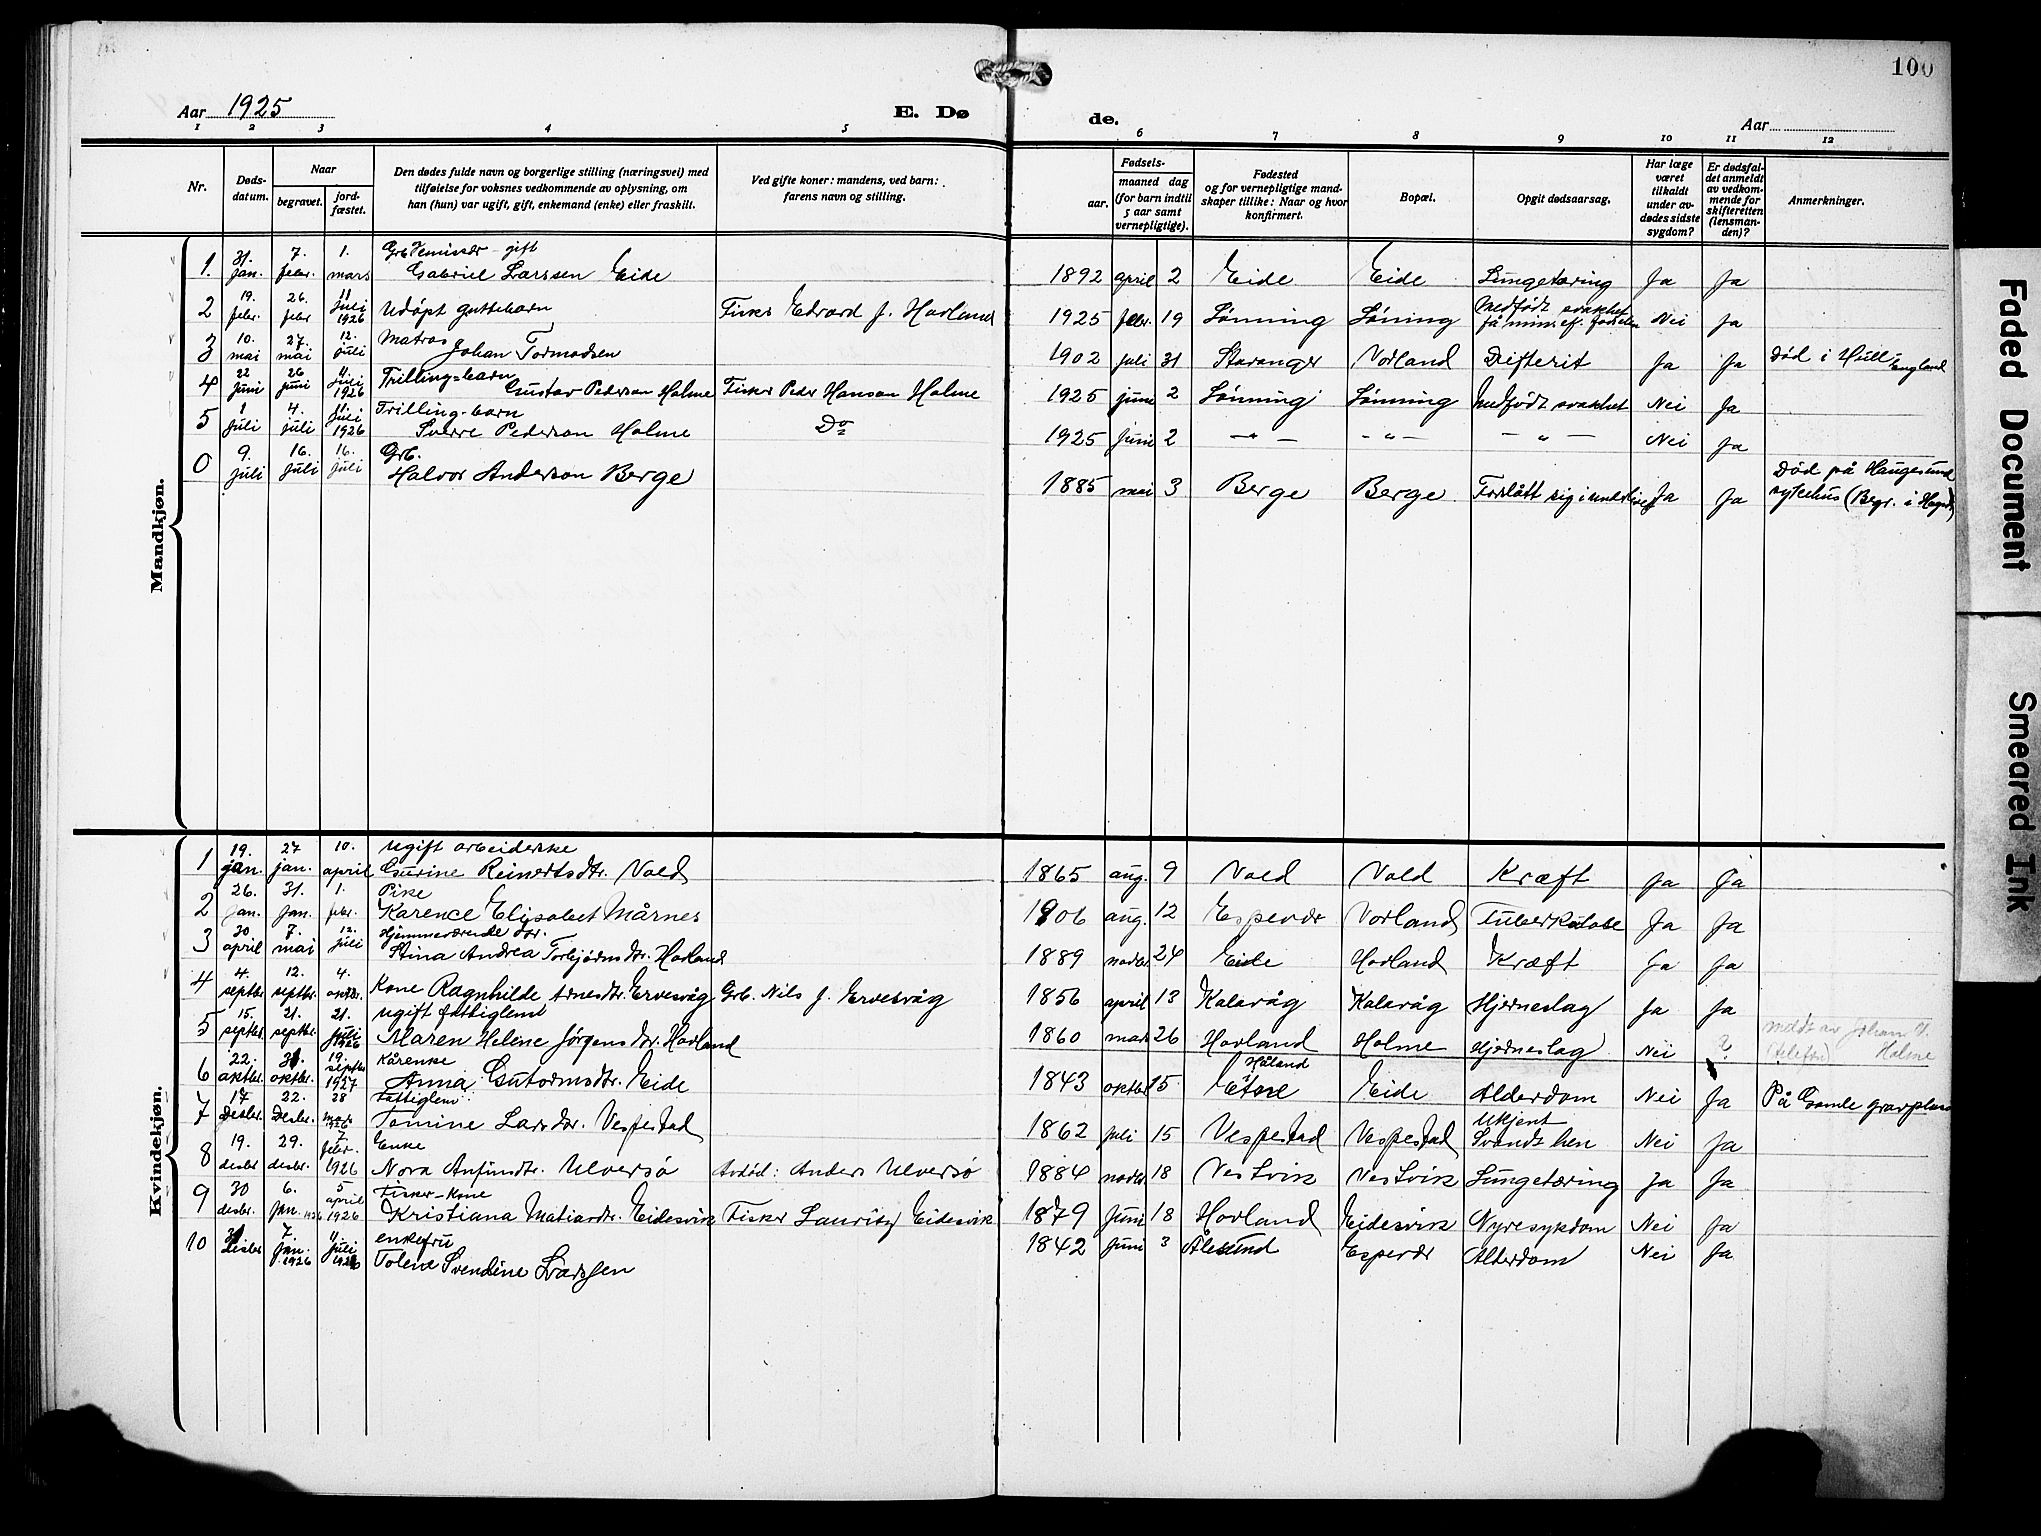 100
Aar 1925
E. Dø
de.
Aar
1 2 3 4 5 6 7 8 9 10 11 12
Nr.
Døds-
datum.
Naar
begravet.
jord-
fæstet.
Den dødes fulde navn og borgerlige stilling (næringsvei) med
tilføielse for voksnes vedkommende av oplysning, om
han (hun) var ugift, gift, enkemand (enke) eller fraskilt.
Ved gifte koner: mandens, ved barn:
farens navn og stilling.
Fødsels-
aar.
maaned dag
(for barn indtil
5 aar samt
vernepligtige).
Fødested
og for vernepligtige mand-
skaper tillike: Naar og hvor
konfirmert.
Bopæl.
Opgit dødsaarsag.
Har læge
været
tilkaldt
under av-
dødes sidste
sygdom?
Er dødsfal-
det anmeldt
av vedkom-
mende for
skifteretten
(lensman-
den)?
Anmerkninger.
Mandkjøn.
1. 31. jan. 7. febr. 1. mars Grb. gift
Gabriel Larssen Eide 1892 april 2 Eide Eide Lungetæring Ja Ja
2 19. febr. 26. febr 11 juli 1926 Udöpt guttebarn Fisker Edvard J. Hovland 1925 febr. 19 Lönning Löning Medfödt svakhet
få min. ef. födselen Nei Ja
3 10. mai 27. mai 12. juli Matros
Johan Tormodsen 1902 juli 31 Stavanger Vorland Difterit Ja Ja Död i Hull England
4 22 juni 26 juni 11. juli 1926 Trilling-barn
Gustav Pederson Holme Fisker Peder Hanson Holme 1925 juni 2 Lönning Lönning Medfödt svakhet Nei Ja
5 1 juli 4. juli 11. juli 1926 Trilling-barn
Sverre Pederson Holme Do 1925 juni 2 - " - - " - - " - Nei Ja
6 9. juli 16. juli 16. juli Grb.
Halvor Anderson Berge 1885 mai 3 Berge Berge Forslått sig i underlivet Ja Ja Död på Haugesund
sykehus (Begr. i Hages.)
Kvindekjøn.
1 19. jan. 27 jan. 10. april Ugift arbeiderske
Gurine Reinertsdtr. Vold 1865 aug. 9 Vold Vold Kræft Ja Ja
2 26. jan. 31. jan. 1. febr. Pike
Karence Elisabet Mårnes 1906 aug. 12 Espevær Vorland Tuberkulose Ja Ja
3 30 april 7. mai 12. juli Hjemmeværende dtr.
Stina Andrea Torbjörnsdtr. Hovland 1889 novbr 24 Eide Hovland Kræft Ja Ja
4 4. septbr 12. septbr. 4. oktbr. Kone Ragnhilde Arnesdtr. Ervesvåg Grb. Nils J. Ervesvåg 1856 april 13 Kalavåg Kalavåg Hjerneslag Ja Ja
5 15. septbr 21. septbr. 21. juli 1926 Ugift fattiglem
Maren Helene Jörgensdtr. Hovland 1860 mars 26 Hovland Holme Hjerneslag Nei ? Meldt av Johan H.
(telefon) Holme
6 22. oktbr. 31. oktbr. 19. septbr 1927 Kårenke
Anna Gutormsdtr. Eide 1843 oktbr 15. Håland
i Etne Eide Alderdom Nei Ja På Gamle gravplass
7 17 Desbr. 22. Desbr. 28 mars 1926 Fattiglem
Tomine Larsdtr. Vespestad 1862 juli 15 Vespestad Vespestad Ukjent
Svandt hen Nei Ja
8 19. desbr 29. desbr. 7. febr. 1926 Enke
Nora Anfindtr. Ulversö Avdöd: Anders Ulversö 1884 novbr 18 Vestvik Vestvik Lungetæring Ja Ja
9 30 desbr. 6. jan. 1926 5 april 1926 Fisker-kone
Kristiana Matiasdtr. Eidesvik Fisker Lauritz Eidesvik 1879 juni 18 Hovland Eidesvik Nyresykdom Nei Ja
10 31 desbr 7. jan. 1926 11. juli 1926 enkefru
Tolene Svendine Larssen 1842 juni 3 Ålesund Espevær Alderdom Nei Ja
Faded Document
Smeared Ink